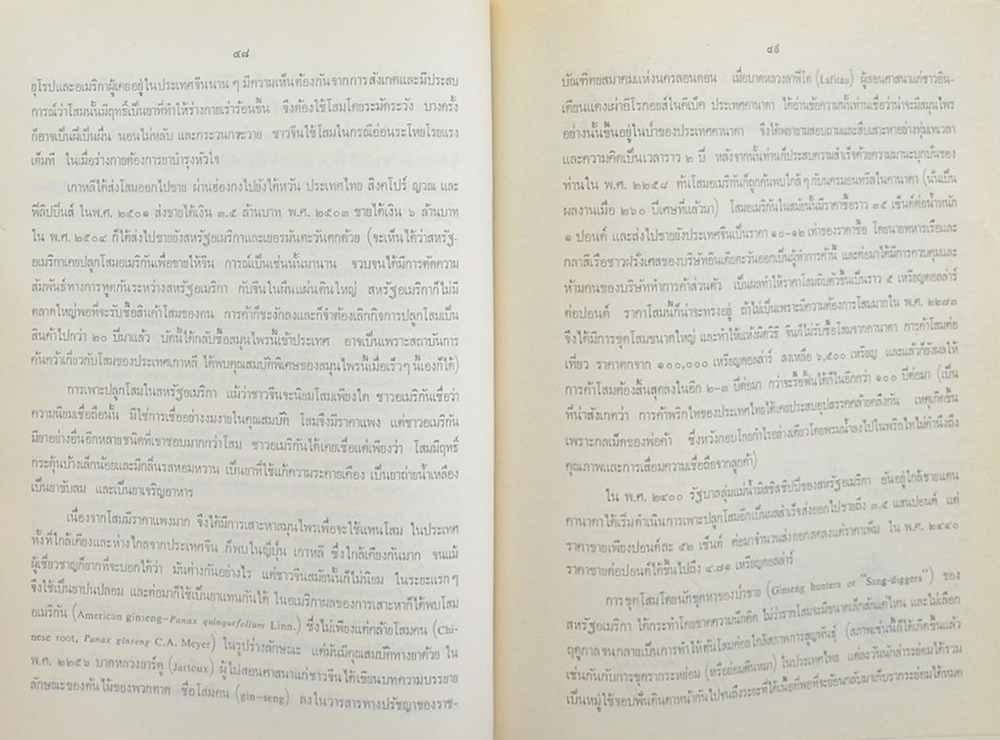 ๔๘
ยุโรปและอเมริกาผู้เคยอยู่ในประเทศจีนนาน ๆ มีความเห็นต้องกันจากการสังเกตและมีประสบ
การณ์ว่าโสมนั้นมีฤทธิ์เป็นยาที่ทำให้ร่างกายเร่าร้อนขึ้น จึงต้องใช้โสมโดยระมัดระวัง บางครั้ง
ก็อาจเป็นผื่นเป็นผื่น นอนไม่หลับ และกระวนกระวาย ชาวจีนใช้โสมในกรณีอ่อนระโหยโรยแรง
เต็มที ในเมื่อร่างกายต้องการยาบำรุงหัวใจ
เกาหลีได้ส่งโสมออกไปขาย ผ่านฮ่องกงไปยังไต้หวัน ประเทศไทย สิงคโปร์ ญวณ และ
ฟิลิปปินส์ ในพ.ศ. ๒๕๐๑ ส่งขายได้เงิน ๓.๕ ล้านบาท พ.ศ. ๒๕๐๓ ขายได้เงิน ๖ ล้านบาท
ใน พ.ศ. ๒๕๐๔ ก็ได้ส่งไปขายยังสหรัฐอเมริกาและเยอรมันตะวันตกด้วย (จะเห็นได้ว่าสหรัฐ-
อเมริกาเคยปลูกโสมอเมริกันเพื่อขายให้จีน การณ์เป็นเช่นนั้นมานาน จวบจนได้มีการตัดความ
สัมพันธ์ทางการทูตกันระหว่างสหรัฐอเมริกา กับจีนในผืนแผ่นดินใหญ่ สหรัฐอเมริกาก็ไม่มี
ตลาดใหญ่พอที่จะรับซื้อสินค้าโสมของตน การค้าก็ชะงักลงและก็จำต้องเลิกกิจการปลูกโสมเป็น
สินค้าไปกว่า ๒๐ ปีมาแล้ว บัดนี้ได้กลับซื้อสมุนไพรนี้เข้าประเทศ อาจเป็นเพราะสถาบันการ
ค้นคว้าเกี่ยวกับโสมของประเทศเกาหลี ได้พบคุณสมบัติพิเศษของสมุนไพรนี้เมื่อเร็วๆ นี้เองก็ได้)
การเพาะปลูกโสมในสหรัฐอเมริกา แม้ว่าชาวจีนจะนิยมโสมเพียงใด ชาวอเมริกันเชื่อว่า
ความนิยมเชื่อถือนั้น มิใช่การเชื่ออย่างงมงายในคุณสมบัติ โสมจึงมีราคาแพง แต่ชาวอเมริกัน
มียาอย่างอื่นอีกหลายชนิดที่เขาชอบมากกว่าโสม ชาวอเมริกันได้เคยเชื่อแต่เพียงว่า โสมมีฤทธิ์
กระตุ้นบ้างเล็กน้อยและมีกลิ่นรสหอมหวาน เป็นยาที่ใช้แก้ความระคายเคือง เป็นยาถ่ายน้ำเหลือง
เป็นยาขับลม และเป็นยาเจริญอาหาร
เนื่องจากโสมมีราคาแพงมาก จึงได้มีการเสาะหาสมุนไพรเพื่อจะใช้แทนโสม ในประเทศ
ทั้งที่ใกล้เคียงและห่างไกลจากประเทศจีน ก็พบในญี่ปุ่น เกาหลี ซึ่งใกล้เคียงกันมาก จนแม้
ผู้เชี่ยวชาญก็ยากที่จะบอกได้ว่า มันต่างกันอย่างไร แต่ชาวจีนสมัยนั้นก็ไม่นิยม ในระยะแรกๆ
จึงใช้เป็นยาปนปลอม และต่อมาก็ใช้เป็นยาแทนกันได้ ในอเมริกาผลของการเสาะหาก็ได้พบโสม
อเมริกัน (American ginseng–Panax quinquefolium Linn.) ซึ่งไม่เพียงแต่คล้ายโสมคน (Chi-
nese root, Panax ginseng C.A. Meyer) ในรูปร่างลักษณะ แต่มันมีคุณสมบัติทางยาด้วย ใน
พ.ศ. ๒๒๕๖ บาดหลวงยาร์ตู (Jartoux) ผู้ไปสอนศาสนาแก่ชาวจีนได้เขียนบทความบรรยาย
ลักษณะของต้นไม้ของพวกตาด ชื่อโสมคน (gin-seng) ลงในวารสารทางปรัชญาของราช-
๔๙
บัณฑิตยสมาคมแห่งนครลอนดอน เมื่อบาดหลวงลาฟิโต (Lafitau) ผู้สอนศาสนาแก่ชาวอิน-
เดียนแดงเผ่าอิโรกอยส์ในคิเบ็ค ประเทศคานาดา ได้อ่านข้อความนั้นท่านเชื่อว่าน่าจะมีสมุนไพร
อย่างนั้นขึ้นอยู่ในป่าของประเทศคานาดา จึงได้พยายามสอบถามและสืบเสาะหาอย่างทุ่มเทเวลา
และความคิดเป็นเวลาราว ๒ ปี หลังจากนั้นท่านก็ประสบความสำเร็จด้วยความมานะบุกบั่นของ
ท่านใน พ.ศ. ๒๒๕๘ ต้นโสมอเมริกันก็ถูกค้นพบใกล้ๆ กับนครมอนทรีลในคานาดา (นั่นเป็น
ผลงานเมื่อ ๒๖๐ ปีเศษที่แล้วมา) โสมอเมริกันในสมัยนั้นมีราคาซื้อราว ๓๕ เซ็นต์ต่อน้ำหนัก
๑ ปอนด์ และส่งไปขายยังประเทศจีนเป็นราคา ๑๐–๑๒ เท่าของราคาซื้อ โดยนายทหารเรือและ
กลาสีเรือชาวฝรั่งเศสของบริษัทอินเดียตะวันออกเป็นผู้ทำการค้านี้ และต่อมาได้มีการควบคุมและ
ห้ามคนของบริษัททำการค้าส่วนตัว เป็นผลทำให้ราคาโสมถีบตัวขึ้นเป็นราว ๕ เหรียญดอลล่าร์
ต่อปอนด์ ราคาโสมนั้นก็น่าจะทรงอยู่ ถ้าไม่เป็นเพราะมีความต้องการโสมมากใน พ.ศ. ๒๒๙๓
จึงได้มีการขุดโสมขนาดใหญ่ และทำให้แห้งผิดวิธี จีนก็ไม่รับซื้อโสมจากคานาดา การค้าโสมต่อ
เที่ยว ราคาตกจาก ๑๐๐,๐๐๐ เหรียญดอลล่าร์ ลงเหลือ ๖,๕๐๐ เหรียญ และแล้วก็ยังผลให้
การค้าโสมต้องสิ้นสุดลงในอีก ๒–๓ ปีต่อมา กว่าจะรื้อฟื้นได้ก็ในอีกกว่า ๑๐๐ ปีต่อมา (เป็น
ที่น่าสังเกตว่า การค้าพริกไทของประเทศไทยได้เคยประสบอุปสรรคคล้ายคลึงกัน เหตุเกิดขึ้น
เพราะกลเม็ดของพ่อค้า ซึ่งหวังกอบโกยกำไรอย่างเดียวโดยพรมน้ำลงไปในพริกไทไม่คำนึงถึง
คุณภาพและการเสื่อมความเชื่อถือจากลูกค้า)
ใน พ.ศ. ๒๔๐๐ รัฐบาลลุ่มแม่น้ำมิสซิสซิปปี้ของสหรัฐอเมริกา อันอยู่ใกล้ชายแดน
คานาดาได้เริ่มดำเนินการเพาะปลูกโสมอีกเป็นผลสำเร็จส่งออกไปขายถึง ๓.๕ แสนปอนด์ แต่
ราคาขายเพียงปอนด์ละ ๕๒ เซ็นต์ ต่อมาจำนวนส่งออกลดลงแต่ราคาเพิ่ม ใน พ.ศ. ๒๔๔๐
ราคาขายต่อปอนด์ได้ขึ้นไปถึง ๔.๗๑ เหรียญดอลล่าร์
การขุดโสมโดยนักขุดหาของป่าขาย (Ginseng hunters or "Sang-diggers") ของ
สหรัฐอเมริกา ได้กระทำโดยขาดความนึกคิด ไม่ว่ารากโสมจะมีขนาดเล็กสักแค่ไหน และไม่เลือก
ฤดูกาล จนกลายเป็นการทำให้ต้นโสมค่อยใกล้สภาพการสูญพันธุ์ (สภาพเช่นนี้ก็ได้เกิดขึ้นแล้ว
เช่นกันกับการขุดรากระย่อม (หรือย่อมตีนหมา) ในประเทศไทย แต่ละวันนักล่าระย่อมได้รวม
เป็นหมู่ใช้จอบฟันดินดาหน้ากันไปจนถึงระยะที่ได้เนื้อที่พอที่จะย้อนกลับมาเก็บรากระย่อมได้หมด